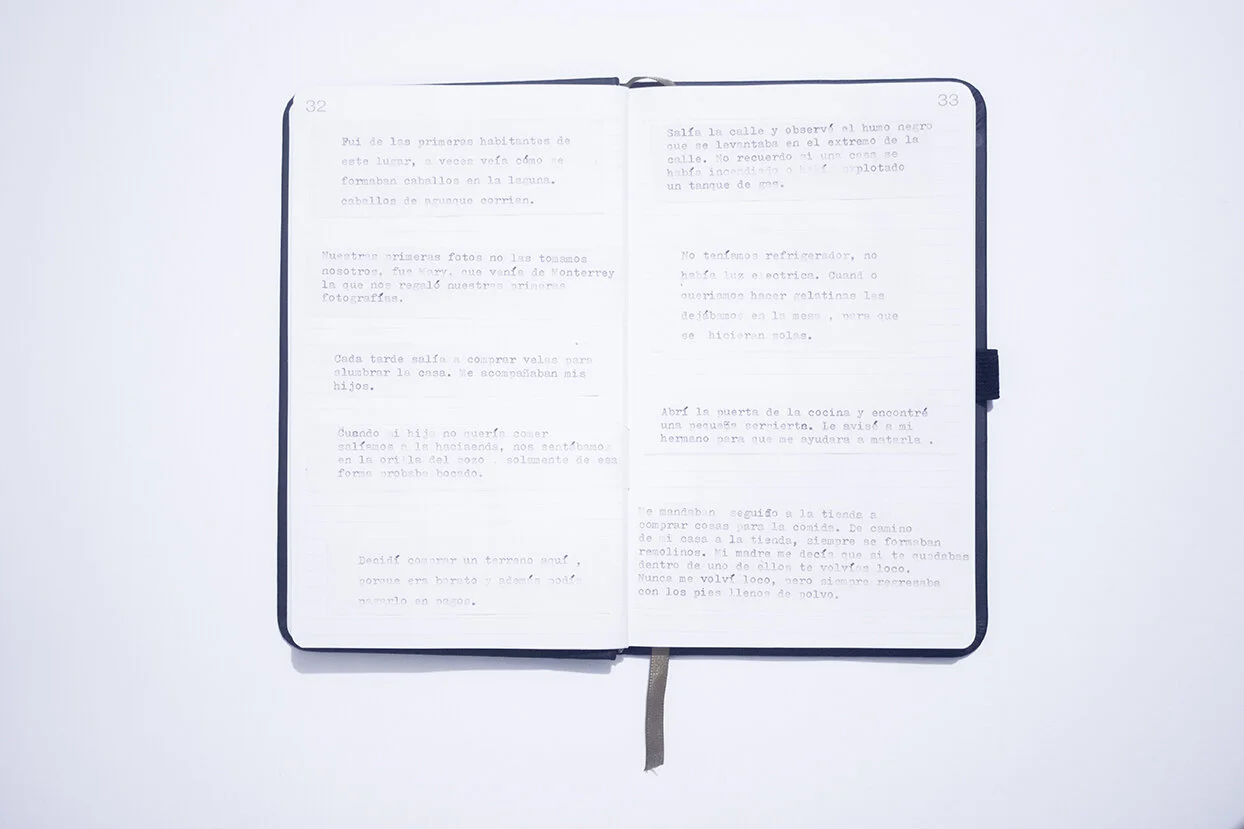 32
Fui de las primeras habitantes de
este lugar, a veces veía cómo se
formaban caballos en la laguna.
caballos de aguaque corrian.
Nuestras primeras fotos no las tomamos
nosotros, fue Mary, que venía de Monterrey
la que nos regaló nuestras primeras
fotografías.
Cada tarde salía a comprar velas para
alumbrar la casa. Me acompañaban mis
hijos.
Cuando mi hijo no quería comer
salíamos a la hacienda, nos sentábamos
en la orilla del pozo , solamente de esa
forma probaba bocado.
Decidí comprar un terreno aquí ,
porque era barato y además podía
pagarlo en pagos.
33
Salía la calle y observé el humo negro
que se levantaba en el extremo de la
calle. No recuerdo si una casa se
había incendiado o había explotado
un tanque de gas.
No teníamos refrigerador, no
había luz electrica. Cuand o
queriamos hacer gelatinas las
dejábamos en la mesa , para que
se hicieran solas.
Abrí la puerta de la cocina y encontré
una pequeña serpiente. Le avisé a mi
hermano para que me ayudara a matarla .
Me mandaban seguido a la tienda a
comprar cosas para la comida. De camino
de mi casa a la tienda, siempre se formaban
remolinos. Mi madre me decía que si te quedabas
dentro de uno de ellos te volvías loco.
Nunca me volví loco, pero siempre regresaba
con los pies llenos de polvo.